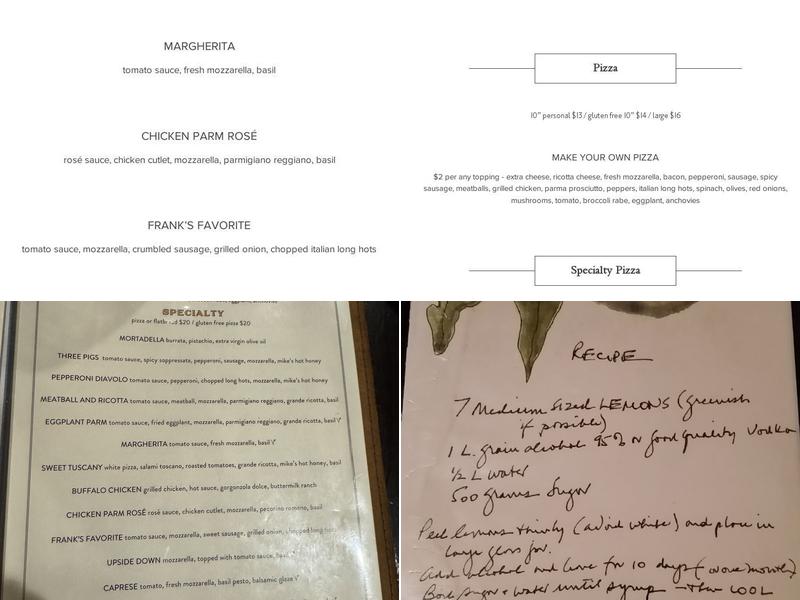 MARGHERITA
tomato sauce, fresh mozzarella, basil
CHICKEN PARM ROSÉ
rosé sauce, chicken cutlet, mozzarella, parmigiano reggiano, basil
FRANK'S FAVORITE
tomato sauce, mozzarella, crumbled sausage, grilled onion, chopped italian long hots
Pizza
10" personal $13 / gluten free 10" $14 / large $16
MAKE YOUR OWN PIZZA
$2 per any topping - extra cheese, ricotta cheese, fresh mozzarella, bacon, pepperoni, sausage, spicy
sausage, meatballs, grilled chicken, parma prosciutto, peppers, italian long hots, spinach, olives, red onions,
mushrooms, tomato, broccoli rabe, eggplant, anchovies
Specialty Pizza
SPECIALTY
pizza or flatbread $20 / gluten free pizza $20
MORTADELLA burrata, pistachio, extra virgin olive oil
THREE PIGS tomato sauce, spicy soppressata, pepperoni, sausage, mozzarella, mike's hot honey
PEPPERONI DIAVOLO tomato sauce, pepperoni, chopped long hots, mozzarella, mike's hot honey
MEATBALL AND RICOTTA tomato sauce, meatball, mozzarella, parmigiano reggiano, grande ricotta, basil
EGGPLANT PARM tomato sauce, fried eggplant, mozzarella, parmigiano reggiano, grande ricotta, basil V
MARGHERITA tomato sauce, fresh mozzarella, basil V
SWEET TUSCANY white pizza, salami toscano, roasted tomatoes, grande ricotta, mike's hot honey, basil
BUFFALO CHICKEN grilled chicken, hot sauce, gorgonzola dolce, buttermilk ranch
CHICKEN PARM ROSÉ rosé sauce, chicken cutlet, mozzarella, pecorino romano, basil
FRANK'S FAVORITE tomato sauce, mozzarella, sweet sausage, grilled onion, chopped long hots
UPSIDE DOWN mozzarella, topped with tomato sauce,
CAPRESE tomato, fresh mozzarella, basil pesto, balsamic glaze V
RECIPE
7 Medium sized LEMONS (greenish
if possible)
1 L. grain alcohol 95% or good quality Vodka
½ L water
500 grams Sugar
Peel lemons thinly (avoid white) and place in
large glass jar.
Add alcohol and leave for 10 days (
Boil sugar & water until syrup - then COOL